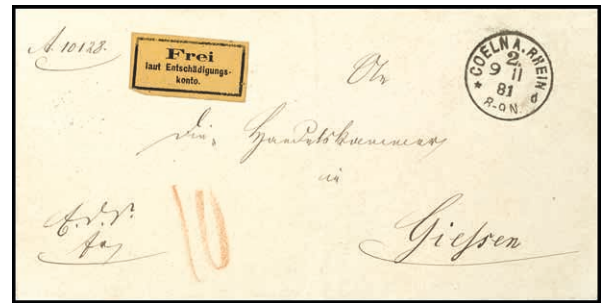 A. 10128.
Frei
laut Entschädigungs-
konto.
COELN A. RHEIN
2.
9 11
81
8-9 N.
d
An
die Handelskammer
in
Giessen
10